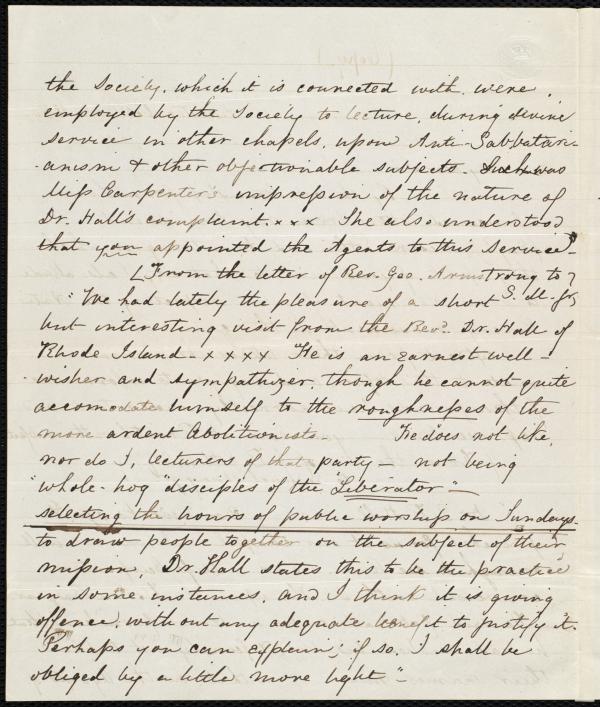 the Society, which it is connected with, were,
employed by the Society to lecture, during divine
service in other chapels, upon Anti-Sabbatari-
-anism & other objectionable subjects. Such was
Miss Carpenter's impression of the nature of
Dr. Hall's complaint. x x x She also understood
that you appointed the Agents to this service"-
[From the letter of Rev. Geo. Armstrong to
S. M. Jr]
"We had lately the pleasure of a short
but interesting visit from the Revd. Dr. Hall of
Rhode Island - x x x x "He is an earnest well-
-wisher and sympathizer, though he cannot quite
accomodate himself to the roughnesses of the
more ardent Abolitionists - He does not like,
nor do I, lecturers of that party - not being
"whole-hog" disciples of the "Liberator" -
selecting the hours of public worship on Sundays
to draw people together on the subject of their
mission. Dr. Hall states this to be the practice
in some instances, and I think it is giving
offence, without any adequate benefit to justify it.
Perhaps you can explain; if so, I shall be
obliged by a little more light"-